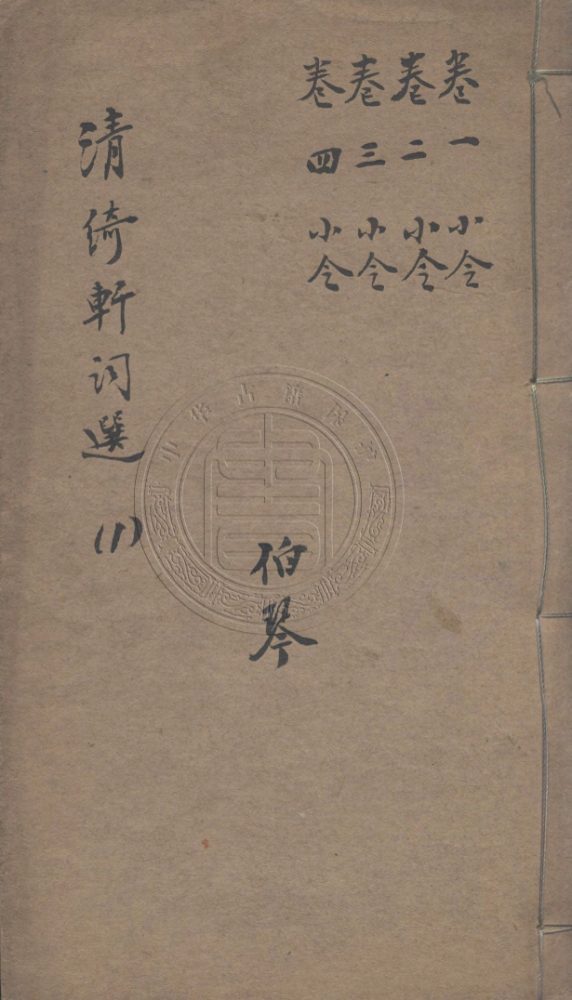 卷一 小令
卷二 小令
卷三 小令
卷四 小令
伯琴
清绮軒词選
(1)